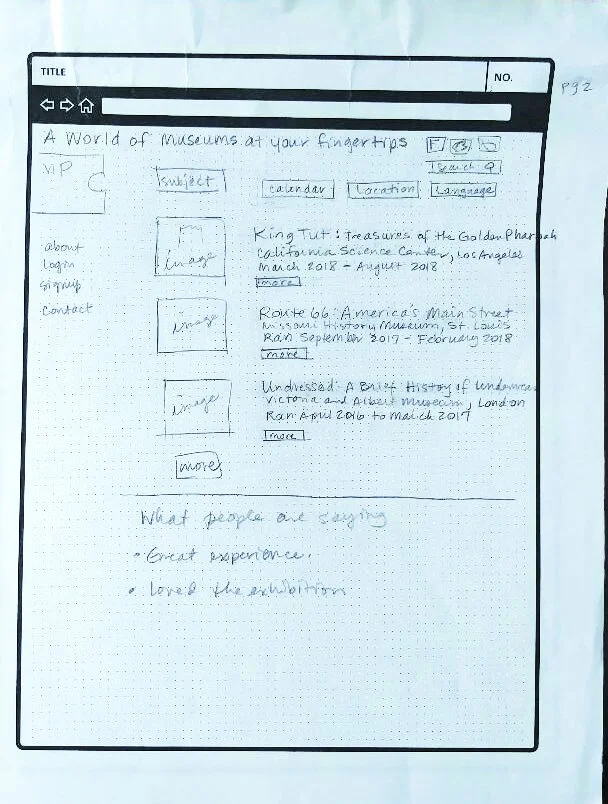 TITLE
NO.
Pg 2
A World of Museums at your fingertips
Search
VIP
subject
calendar
Location
Language
about
login
signup
contact
image
King Tut: Treasures of the Golden Pharoah
California Science Center, Los Angeles
March 2018 - August 2018
more
image
Route 66: America's Main Street
Missouri History Museum, St. Louis
Ran September 2017 - February 2018
more
image
Undressed: A Brief History of Underwear
Victoria and Albert Museum, London
Ran April 2016 to March 2017
more
more
What people are saying
• Great experience.
• Loved the exhibition